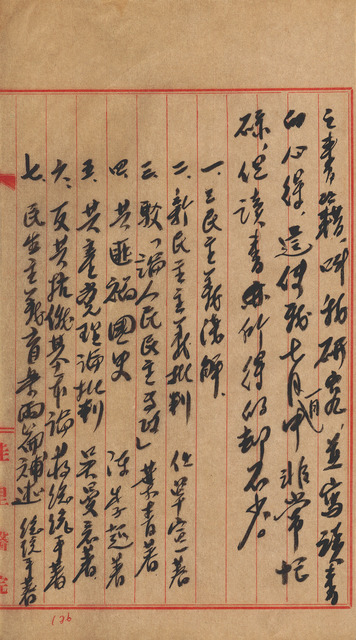 之書籍，叫我研究，並寫讀書
的心得，這使我七月中非常忙
碌，但讀書所得的却不少。
一、三民主義淺解
二、新民主主義批判 任卓宣著
三、駁「論人民民主專政」 葉青著
四、共匪禍國史
五、共產党理論批判
六、反共抗俄基本論 蔣總統手著
七、民生主義育樂兩篇補述 總統手著
126